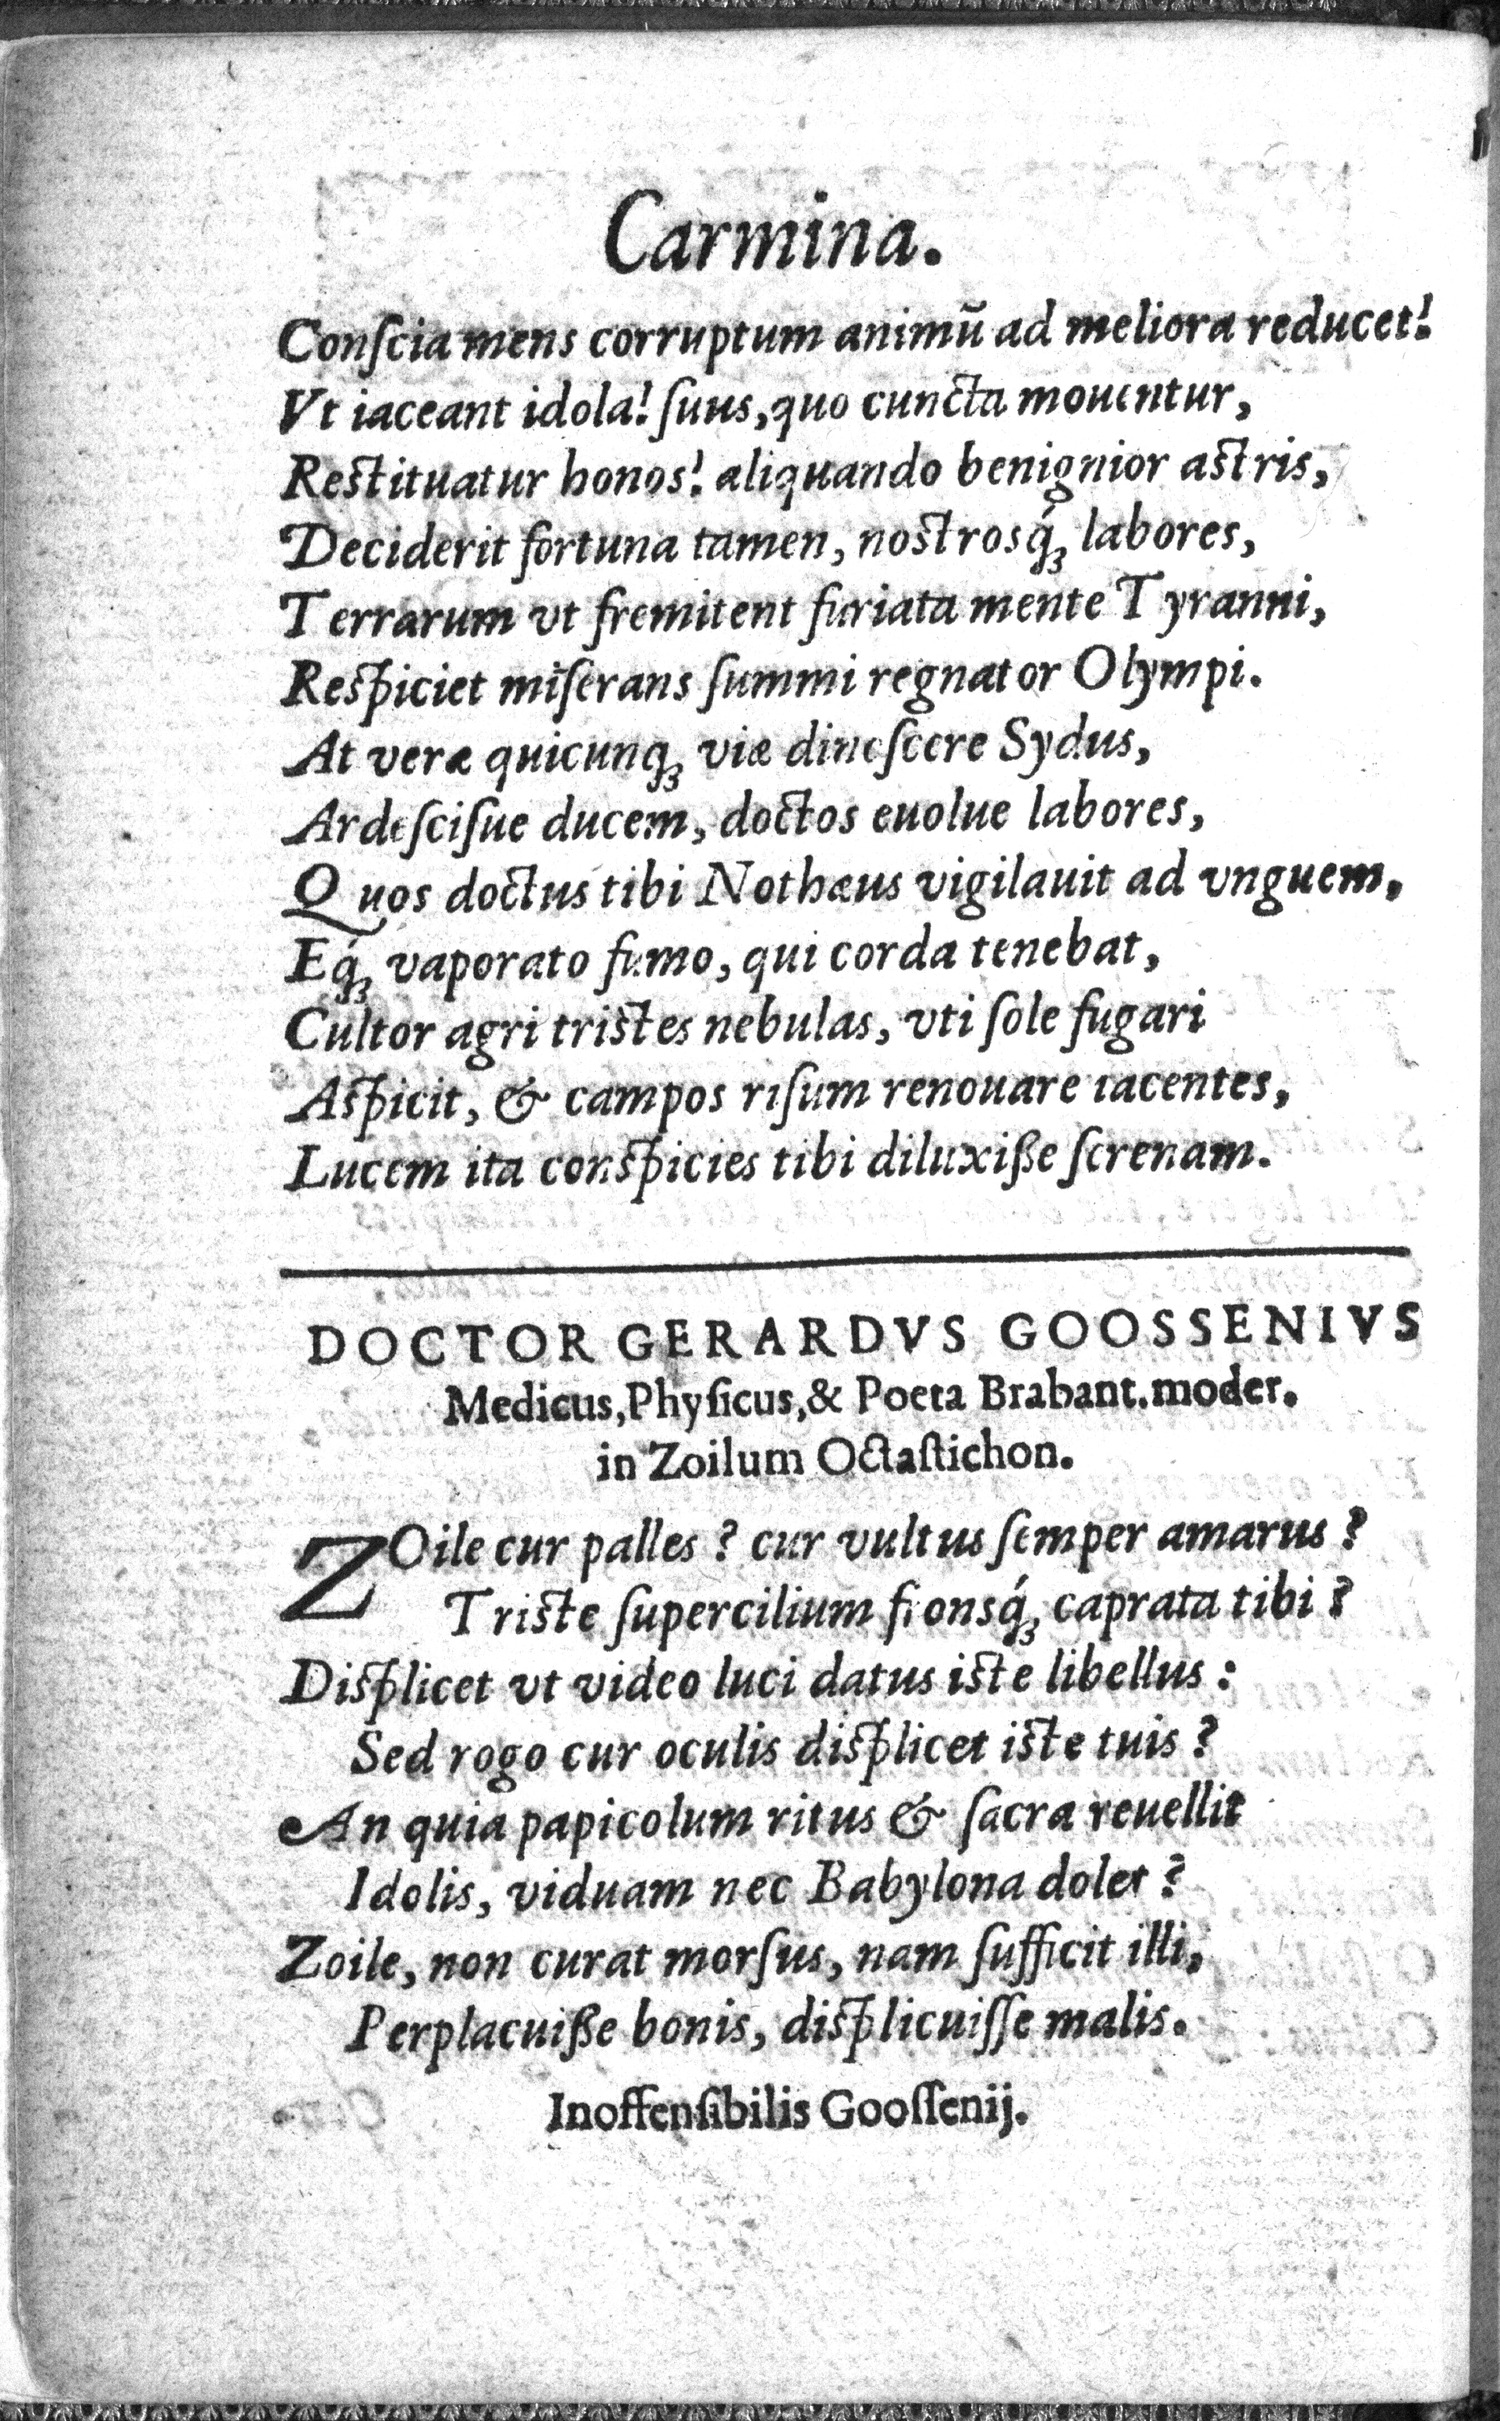 Carmina.
Conſcia mens corruptum animū ad meliora reducet!
Vt iaceant idola! ſuus, quo cuncta mouentur,
Reſtituatur honos! aliquando benignior aſtris,
Deciderit fortuna tamen, noſtrosq́ꝫ labores,
Terrarum vt fremitent furiata mente Tyranni,
Reſpiciet miſerans ſummi regnator Olympi.
At veræ quicunqꝫ viæ dineſcere Sydus,
Ardeſciſue ducem, doctos euolue labores,
Quos doctus tibi Nothæus vigilauit ad vnguem,
Eq́ꝫ vaporato fumo, qui corda tenebat,
Cultor agri triſtes nebulas, vti ſole fugari
Aſpicit, & campos riſum renouare iacentes,
Lucem ita conſpicies tibi diluxiße ſerenam.
DOCTOR GERARDVS GOOSSENIVS
Medicus, Phyſicus, & Poeta Brabant. moder.
in Zoilum Octaſtichon.
ZOile cur palles? cur vultus ſemper amarus?
Triſte ſupercilium fronsq́ꝫ caprata tibi?
Diſplicet vt video luci datus iſte libellus:
Sed rogo cur oculis diſplicet iſte tuis?
An quia papicolum ritus & ſacra reuellit
Idolis, viduam nec Babylona dolet?
Zoile, non curat morſus, nam ſufficit illi,
Perplacuiße bonis, diſplicuiſſe malis.
Inoffenſibilis Gooſſenij.